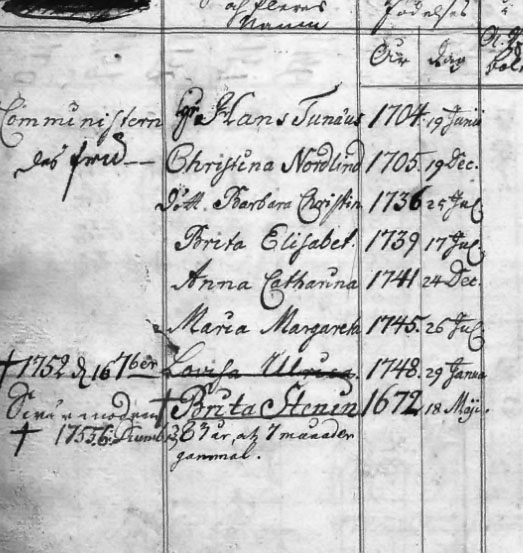 och fleras Födelses
Namn
År dag
Communistern Hr Hans Tunæus 1704. 19 Junii
des fru Christina Nordlind 1705. 19 Dec.
dött. Barbara Christin 1736 25 Jul.
Brita Elisabet. 1739 17 Jul.
Anna Catharina 1741 24 Dec.
Maria Margareta 1745. 26 Jul.
† 1752 d 16 7ber Lovisa Ulrica. 1748. 29 Janua
Svärmodren † Brita Stenin 1672 18 Maji.
† 1755 6 83 år, och 7 månader
gammal.